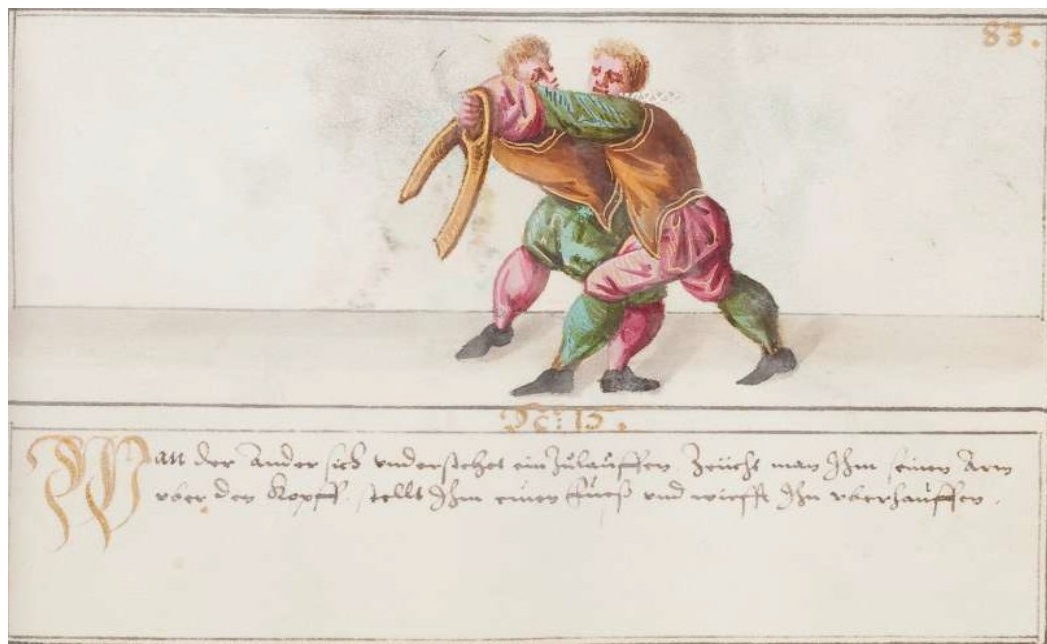 83.
N: 15.
Wan der Ander sich vnderstehet ein Zulauffen Zeücht man Ihm seinen Arm
vber den Kopff, stellt Ihm einen fuess vnd wirfft Ihn vberhauffen.